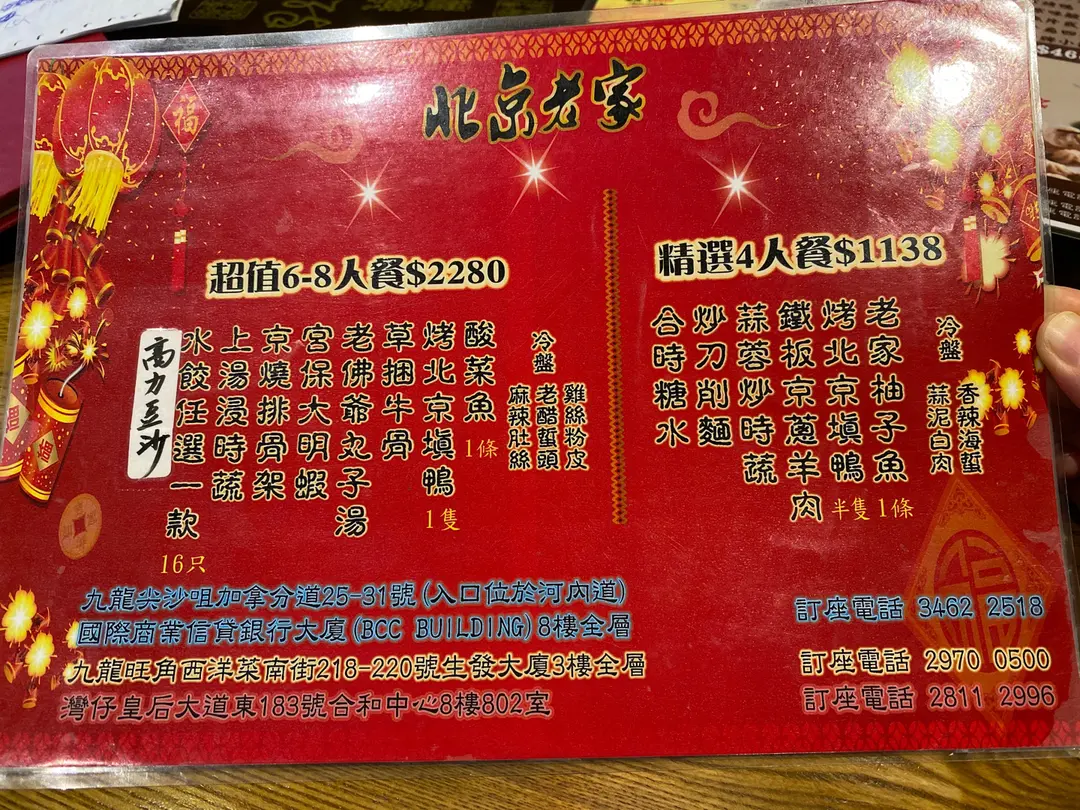 北京老家
福
超值6-8人餐$2280
冷盤
雞絲粉皮
老醋蜇頭
麻辣肚絲
酸菜魚 1條
烤北京填鴨 1隻
草捆牛骨
老佛爺丸子湯
宮保大明蝦
京燒排骨架
上湯浸時蔬
水餃任選一款 16只
高力豆沙
精選4人餐$1138
冷盤
香辣海蜇
蒜泥白肉
老家柚子魚 1條
烤北京填鴨 半隻
鐵板京蔥羊肉
蒜蓉炒時蔬
炒刀削麵
合時糖水
九龍尖沙咀加拿分道25-31號(入口位於河內道)
國際商業信貸銀行大廈(BCC BUILDING)8樓全層
訂座電話 3462 2518
九龍旺角西洋菜南街218-220號生發大廈3樓全層
訂座電話 2970 0500
灣仔皇后大道東183號合和中心8樓802室
訂座電話 2811 2996